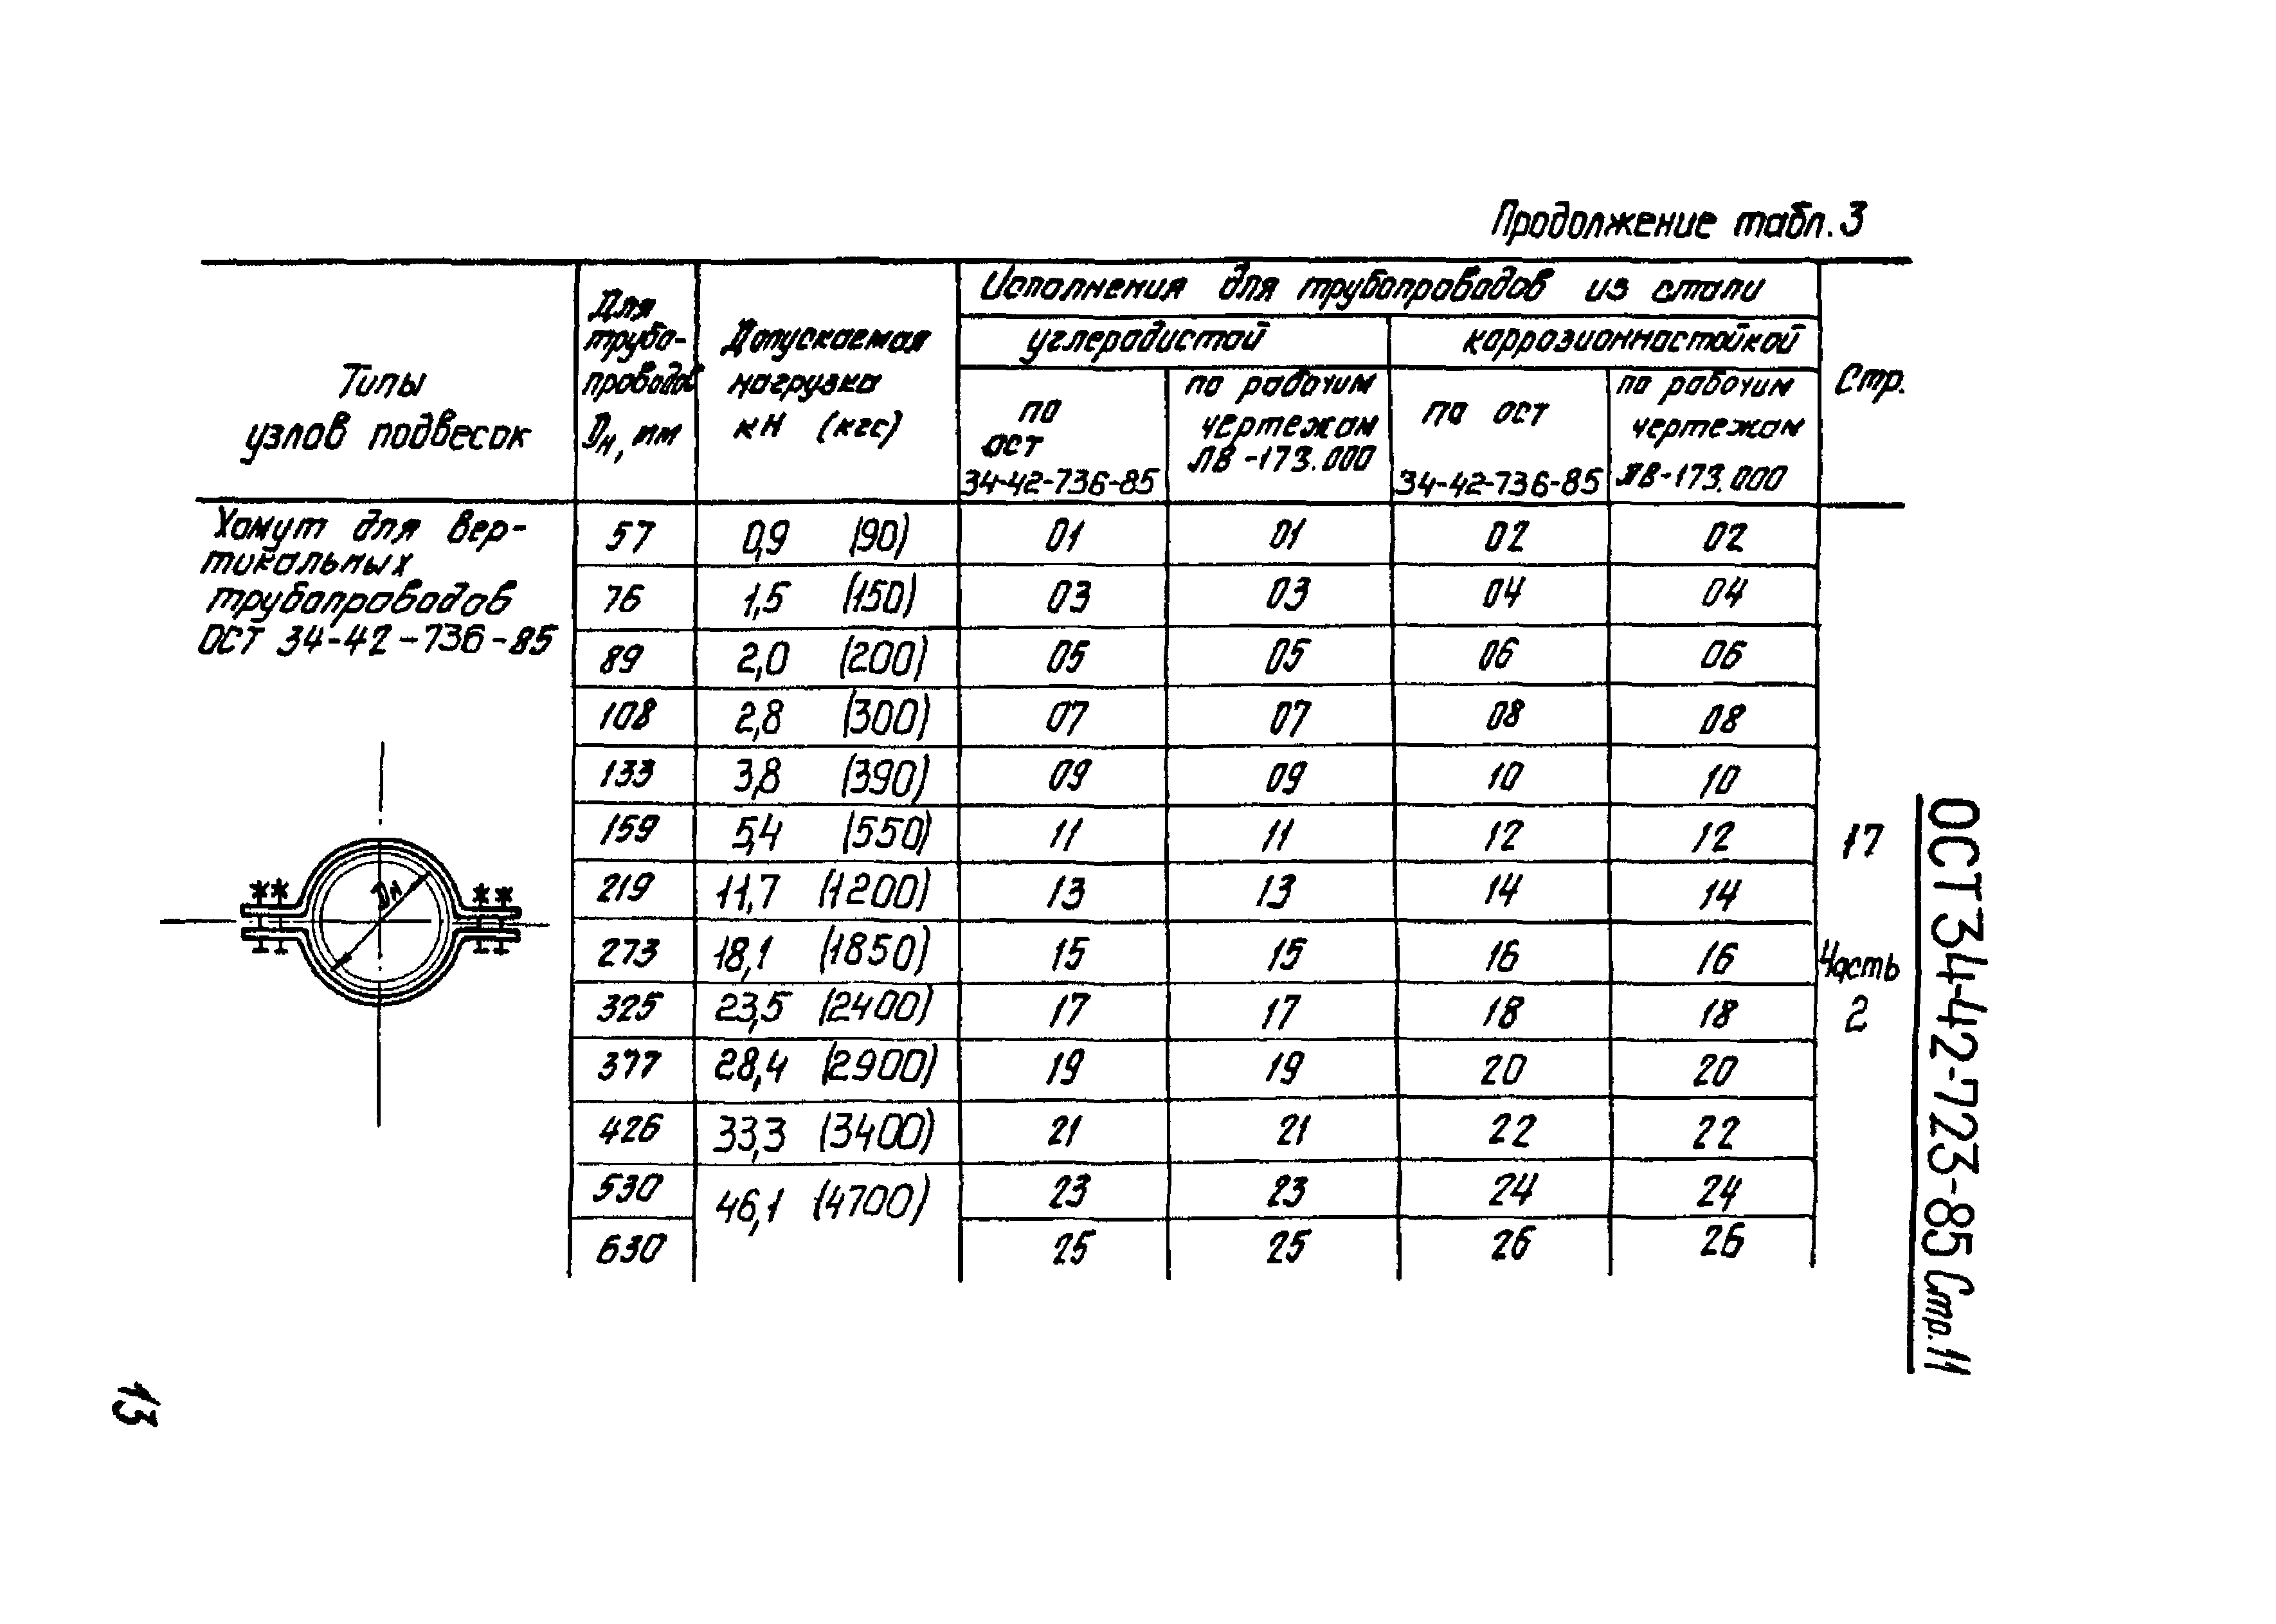 Продолжение табл. 3
Типы
узлов подвесок
Для
трубо-
проводов
Dн, мм
Допускаемая
нагрузка
кН (кгс)
Исполнения для трубопроводов из стали
углеродистой
коррозионностойкой
по
ОСТ
34-42-736-85
по рабочим
чертежам
ЛВ-173.000
по ОСТ
34-42-736-85
по рабочим
чертежам
ЛВ-173.000
Стр.
Хомут для вер-
тикальных
трубопроводов
ОСТ 34-42-736-85
Dн
57 0,9 (90) 01 01 02 02
76 1,5 (150) 03 03 04 04
89 2,0 (200) 05 05 06 06
108 2,8 (300) 07 07 08 08
133 3,8 (390) 09 09 10 10
159 5,4 (550) 11 11 12 12
219 11,7 (1200) 13 13 14 14
273 18,1 (1850) 15 15 16 16
325 23,5 (2400) 17 17 18 18
377 28,4 (2900) 19 19 20 20
426 33,3 (3400) 21 21 22 22
530 46,1 (4700) 23 23 24 24
630 25 25 26 26
17
Часть
2
ОСТ 34-42-723-85 Стр. 11
13